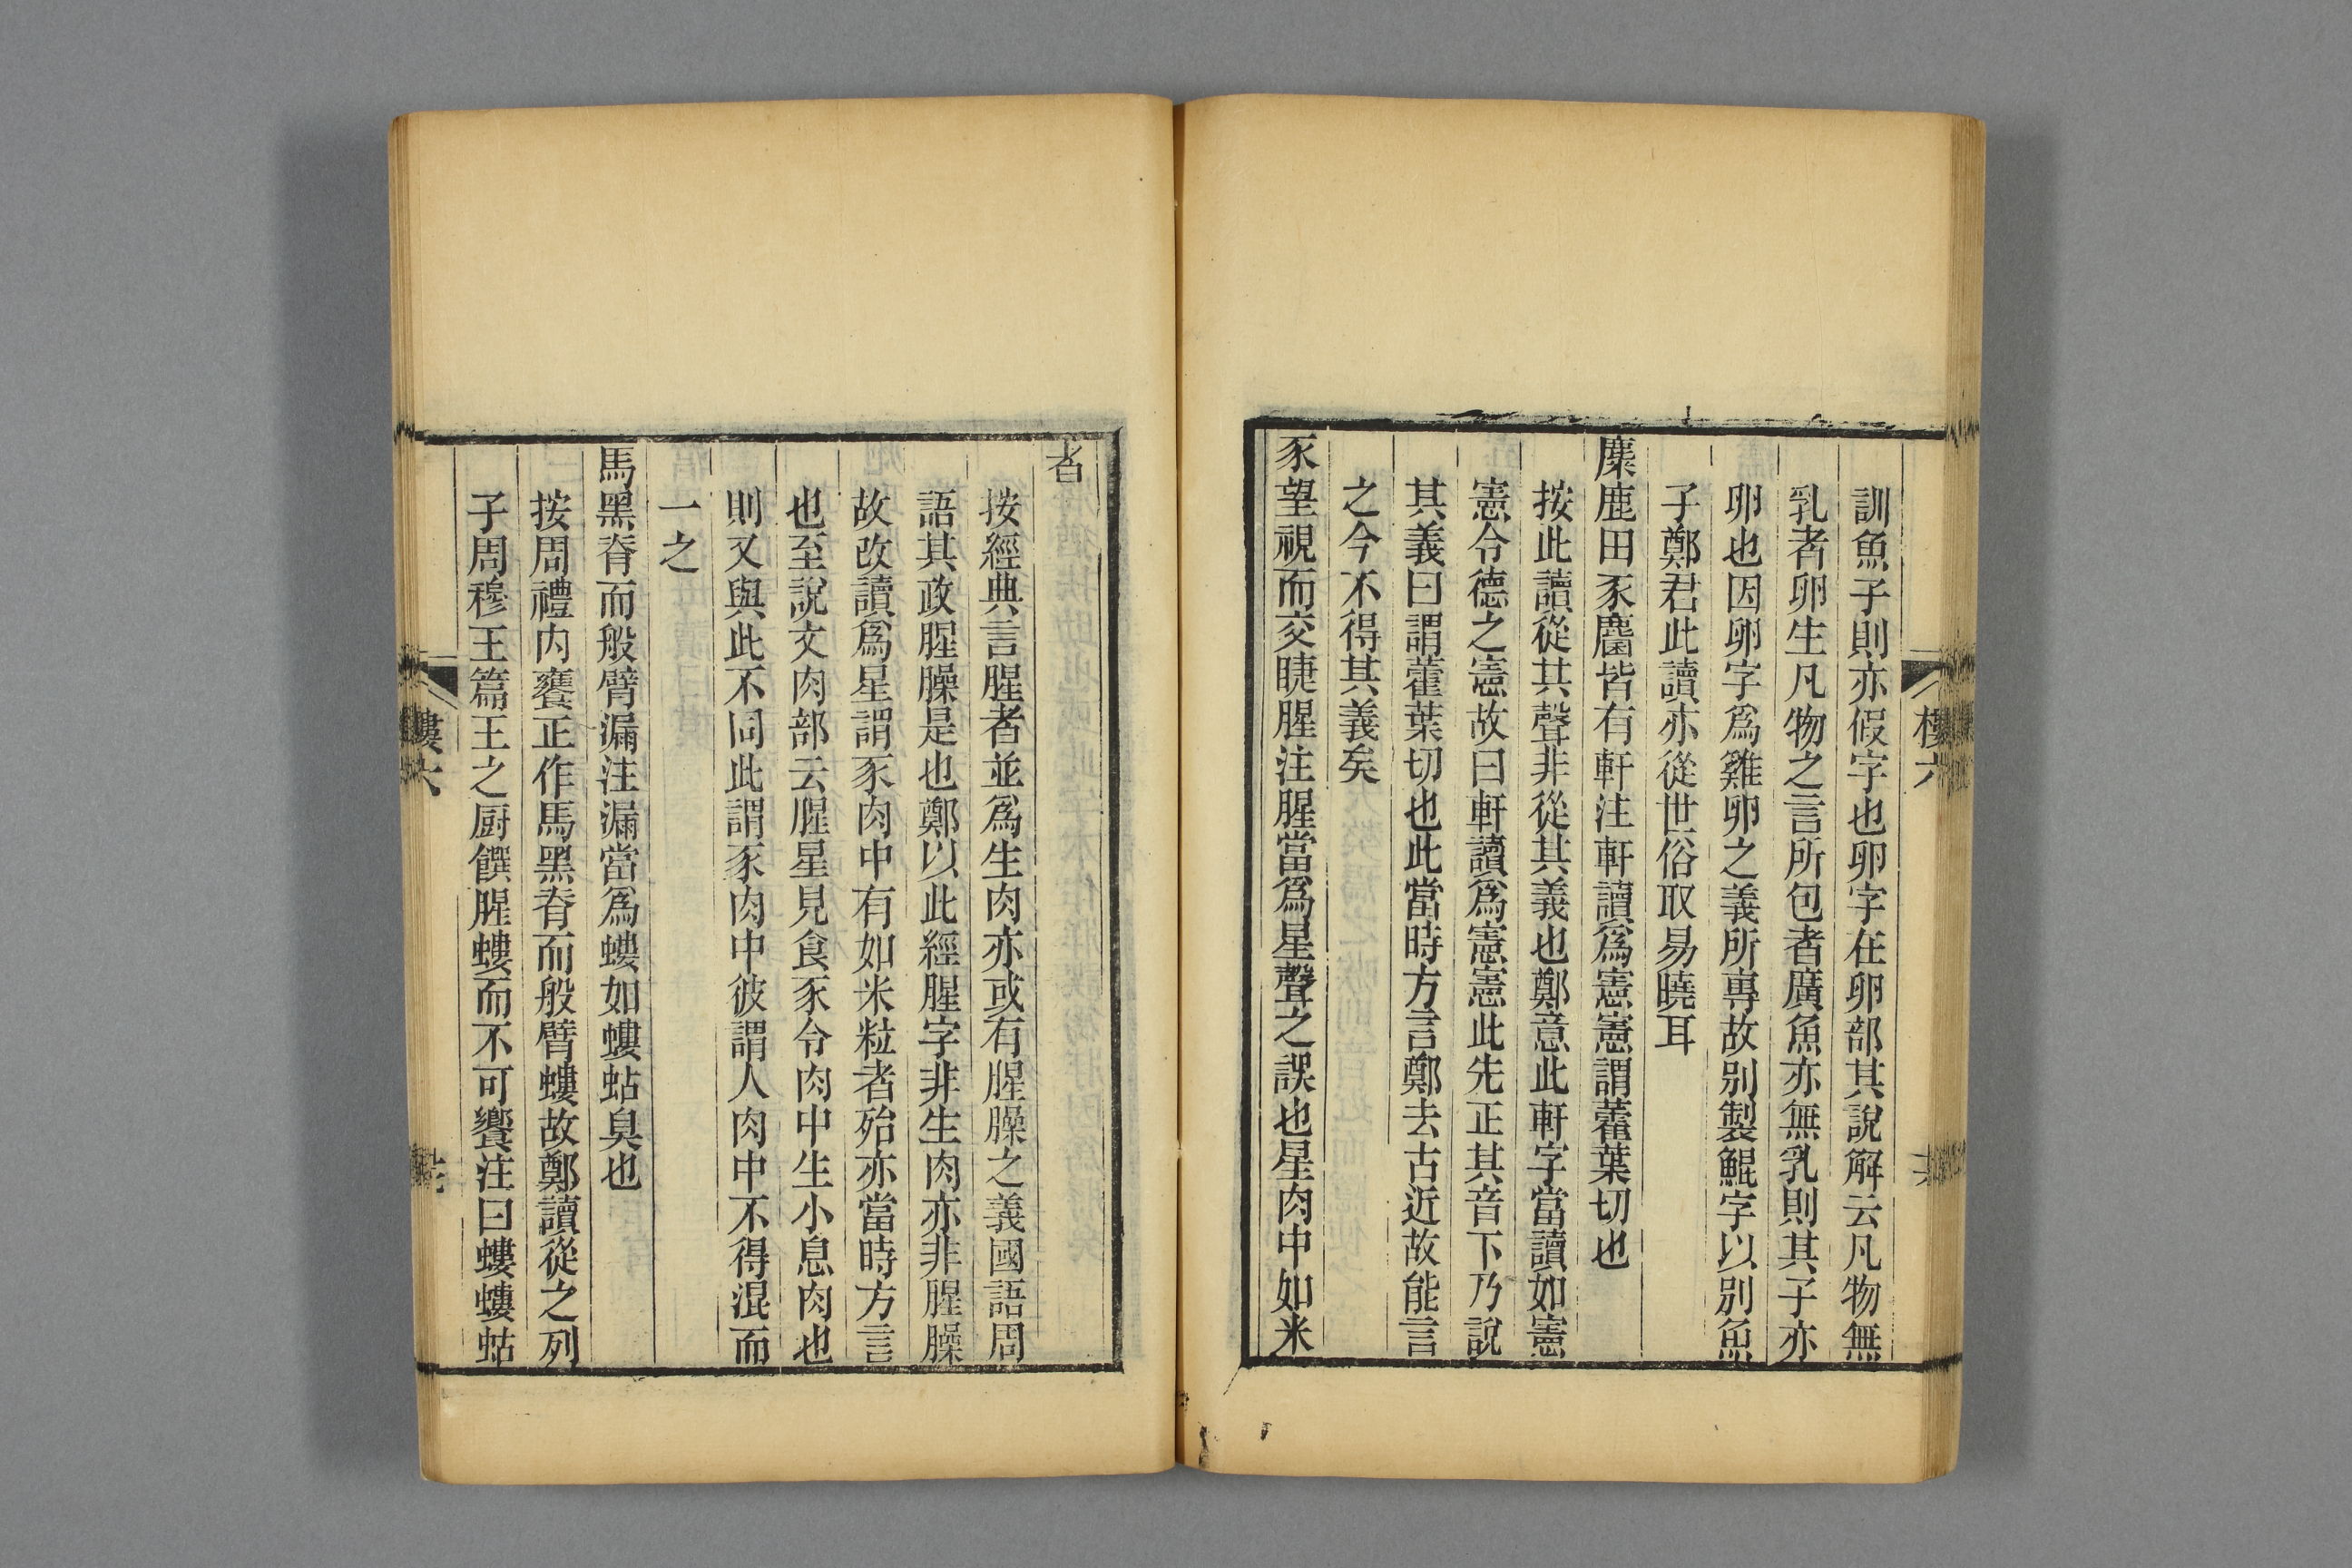 訓魚子則亦假字也卵字在卵部其說解云凡物無
乳者卵生凡物之言所包者廣魚亦無乳則其子亦
卵也因卵字爲雞卵之義所專故別製鯤字以別魚
子鄭君此讀亦從世俗取易曉耳
麋鹿田豕麕皆有軒注軒讀爲憲憲謂藿葉切也
按此讀從其聲非從其義也鄭意此軒字當讀如憲
憲令德之憲故曰軒讀爲憲憲此先正其音下乃說
其義曰謂藿葉切也此當時方言鄭去古近故能言
之今不得其義矣
豕望視而交睫腥注腥當爲星聲之誤也星肉中如米
者
按經典言腥者並爲生肉亦或有腥臊之義國語周
語其政腥臊是也鄭以此經腥字非生肉亦非腥臊
故改讀爲星謂豕肉中有如米粒者殆亦當時方言
也至說文肉部云腥星見食豕令肉中生小息肉也
則又與此不同此謂豕肉中彼謂人肉中不得混而
一之
馬黑脊而般臂漏注漏當爲螻如螻蛄臭也
按周禮內饔正作馬黑脊而般臂螻故鄭讀從之列
子周穆王篇王之厨饌腥螻而不可饗注曰螻螻蛄